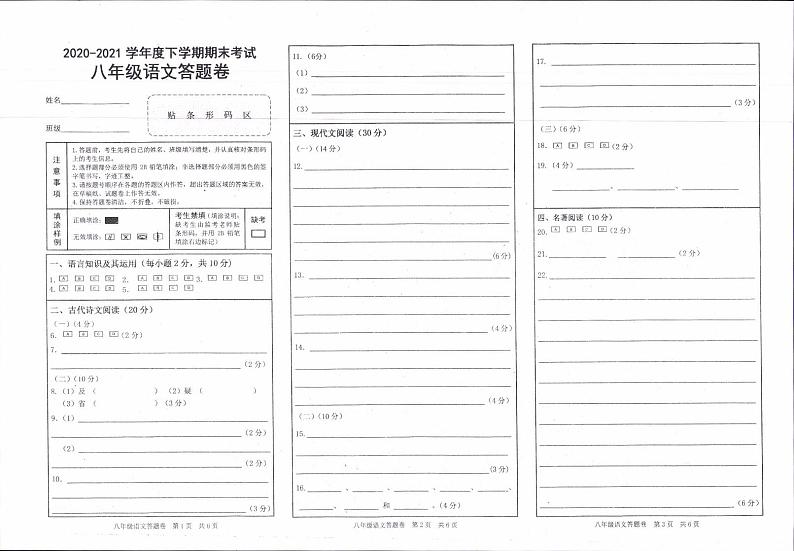 2020-2021 学年度下学期期末考试
八年级语文答题卷
姓名____________
班级____________
贴 条 形 码 区
注意事项
1.答题前，考生先将自己的姓名、班级填写清楚，并认真核对条形码
上的考生信息。
2.选择题部分必须使用 2B 铅笔填涂；非选择题部分必须用黑色的签
字笔书写，字迹工整。
3.请按题号顺序在各题的答题区内作答，超出答题区域的答案无效，
在草稿纸、试题卷上作答无效。
4.保持答题卷清洁，不折叠，不破损。
填涂样例
正确填涂：
无效填涂：
考生禁填（填涂说明：
缺考生由监考老师贴
条形码，并用 2B 铅笔
填涂右边标记）
缺考
一、语言知识及其运用（每小题 2 分，共 10 分）
1. A B C D 2. A B C D 3. A B C D
4. A B C D 5. A B C D
二、古代诗文阅读（20 分）
（一）（4 分）
6. A B C D（2 分）
7.
（2 分）
（二）（10 分）
8.（1）及（ ）（2）疑（ ）
（3）省（ ）（3 分）
9.（1）
（2 分）
（2）
（2 分）
10.
（3 分）
八年级语文答题卷 第 1 页 共 6 页
11.（6分）
（1）
（2）
（3）
三、现代文阅读（30 分）
（一）（14 分）
12.
（6分）
13.
（4 分）
14.
（4 分）
（二）（10 分）
15.
（3分）
16.______、______、______、______、______、
______、______ 和 ______。（4 分）
八年级语文答题卷 第 2 页 共 6 页
17.
（3 分）
（三）（6 分）
18. A B C D（2 分）
19.（4 分）____________
____________、____________、____________
四、名著阅读（10 分）
20. A B C D（2 分）
21.____________ ____________（2 分）
22.
（6 分）
八年级语文答题卷 第 3 页 共 6 页